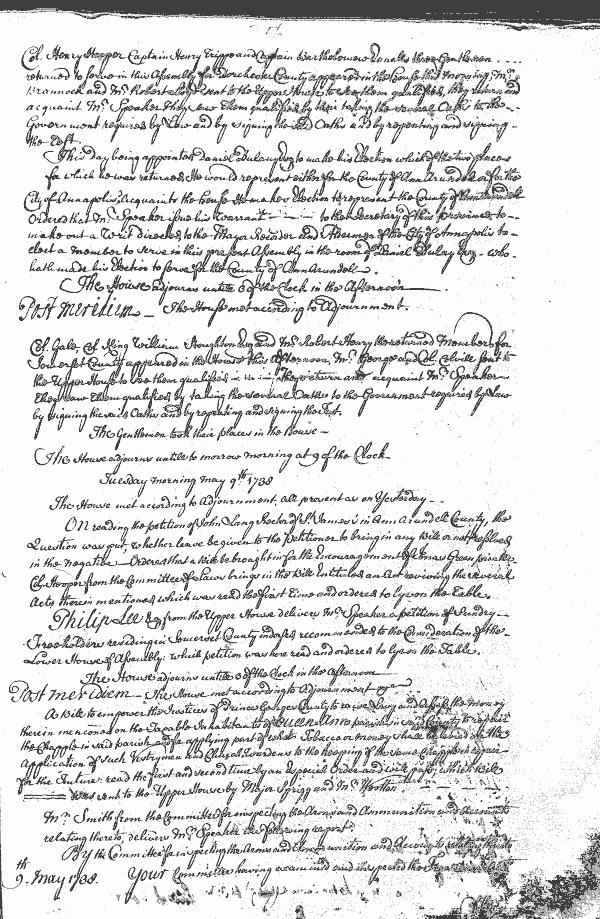 Col. Henry Hooper Captain Henry Trippe and Captain Bartholomew Ennalls three Gentlemen
returned to serve in this Assembly for Dorchester County appeared in the House this morning, Mr.
Brannock and Mr. Robert sent to the Upper House to see them qualified, they return and
acquaint Mr. Speaker they saw them qualified by their taking the several Oaths to the
Government required by Law and by signing the said Oaths and by repeating and signing
the Test.
This day being appointed Daniel Dulany Esq to make his Election which of the two places
for which he was returned He would represent either for the County of Ann Arundel or for the
City of Annapolis, Acquaints the House He makes Election to represent the County of Ann Arundell
Ordered that Mr. Speaker issue his Warrant to the Secretary of this Province to
make out a Writ directed to the Mayor Recorder and Aldermen of the City of Annapolis to
elect a member to serve in this present Assembly in the room of Daniel Dulany Esq. who
hath made his Election to serve for the County of Ann Arundell.
The House adjourns until 3 of the Clock in the Afternoon
Post Meridiem The House met according to Adjournment.
Col. Gale, Col. King William Stoughton Esq and Mr. Robert Henry the returned Members for
Somerset County appeared in the House this Afternoon, Mr. George and Col. Colvill sent to
the Upper House to see them qualified They return and acquaint Mr. Speaker
They saw them qualified by taking the several Oaths to the Government required by Law
by signing the said Oaths and by repeating and signing the Test.
The Gentlemen took their places in the House
The House adjourns until to morrow morning at 9 of the Clock
Tuesday morning May 9th 1738
The House met according to Adjournment, all present as on Yesterday
On reading the petition of John Lang Rector of St. James's in Ann Arundell County, the
Question was put, whether leave be given to the Petitioner to bring in any Bill or not resolved
in the Negative Ordered that a Bill be brought in for the Encouragement of Jonas Green printer
Col. Hooper from the Committee of Laws brings in the Bill Entituled an Act reviving the several
Acts therein mentioned which was read the first Time and ordered to lye on the Table.
Philip Lee Esq from the Upper House delivers Mr. Speaker a petition of Sundry
Freeholders residing in Somerset County indorsed recommended to the Consideration of the
Lower House of Assembly; which petition was here read and ordered to lye on the Table.
The House adjourns until 3 of the Clock in the Afternoon
Post Meridiem The House met according to Adjournment
A Bill to empower the Justices of Prince Georges County to raise Levy and Assess the money
therein mentioned on the Taxable Inhabitants of Queen Ann parish in said County to repair
the Chapple in said parish and for applying part of what Tobacco or money shall be on the
Application of such Vestrymen and Church Wardens to the keeping of the same Chapple in repair
for the Future; read the first and second time by an especial Order and will pass, which Bill
was sent to the Upper House by Major Sprigg and Mr. Wootton
Mr. Smith from the Committee for inspecting the Arms and Ammunition and Accounts
relating thereto, delivers Mr. Speaker the following report
By the Committee for inspecting the Arms and Ammunition and Accounts relating thereto
9th May 1738. Your Committee having examined and inspected the